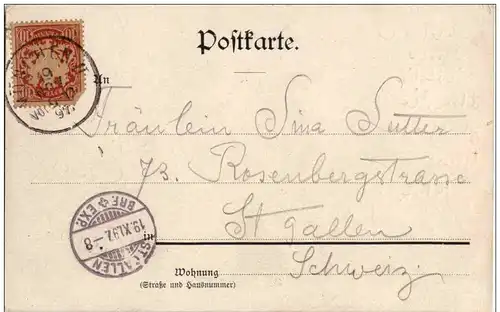 Postkarte.
An
Fräulein Sina Sutter
73. Rosenbergstrasse
in St Gallen
Schweiz.
Wohnung
(Straße und Hausnummer)
ST. GALLEN
19.XI.97.–8
BRF. EXP.